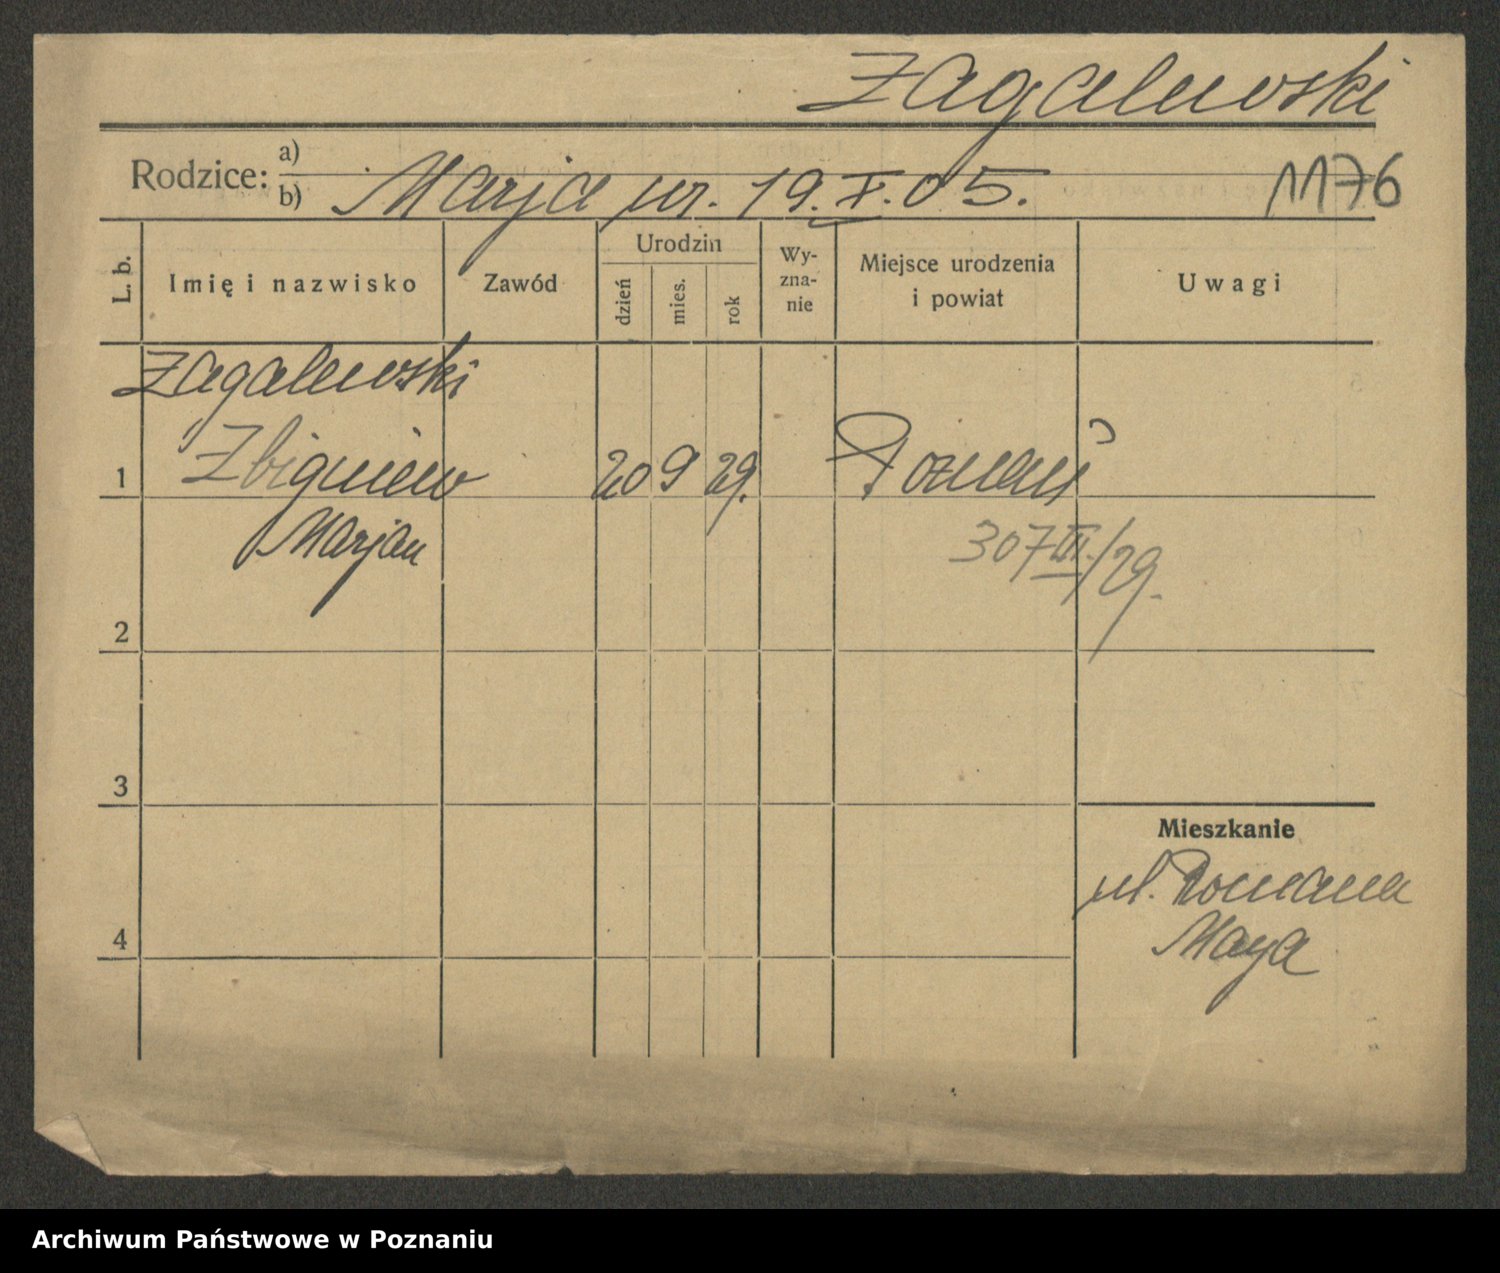 Zagalewski
Rodzice: a)
b) Marja ur. 19.X.05.
1176
L. b.
Imię i nazwisko
Zawód
Urodzin
dzień
mies.
rok
Wy-
zna-
nie
Miejsce urodzenia
i powiat
Uwagi
Zagalewski
1 Zbigniew 20 9 29. Poznań
Marjan
307 III./29.
2
3
Mieszkanie
ul. Romana
Maya
4
Archiwum Państwowe w Poznaniu